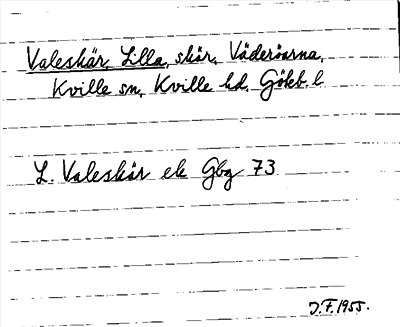 Valeskär, Lilla, skär, Väderöarna,
Kville sn, Kville hd, Göteb. l
L. Valeskär ek Gbg 73
J.F. 1955.